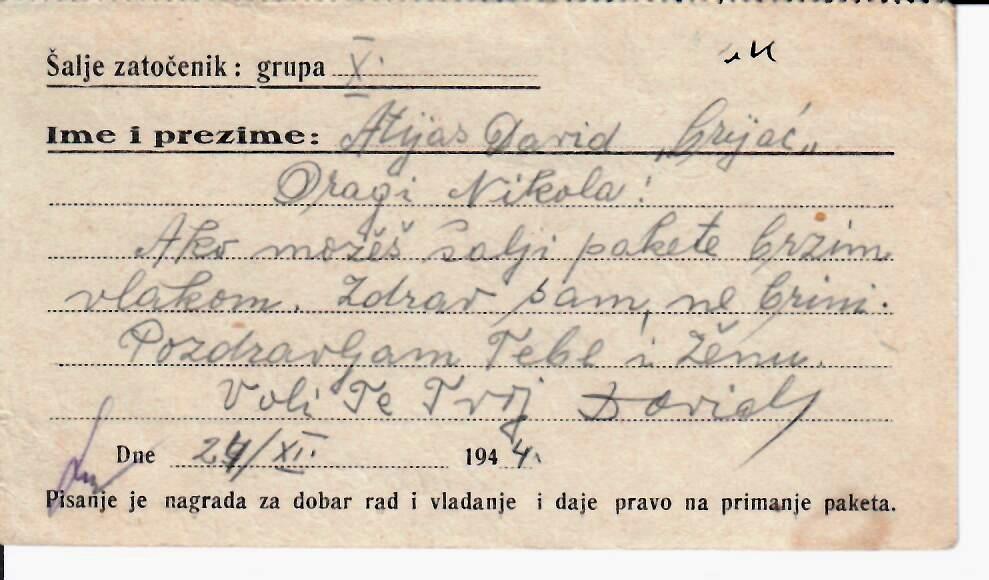 Šalje zatočenik: grupa X.
Ime i prezime: Atijas David „brijać„
Dragi Nikola!
Ako možeš šalji pakete brzim
vlakom. Zdrav sam, ne brini.
Pozdravljam Tebe i Ženu.
Voli Te Tvoj David
Dne 24/XI. 1944.
Pisanje je nagrada za dobar rad i vladanje i daje pravo na primanje paketa.